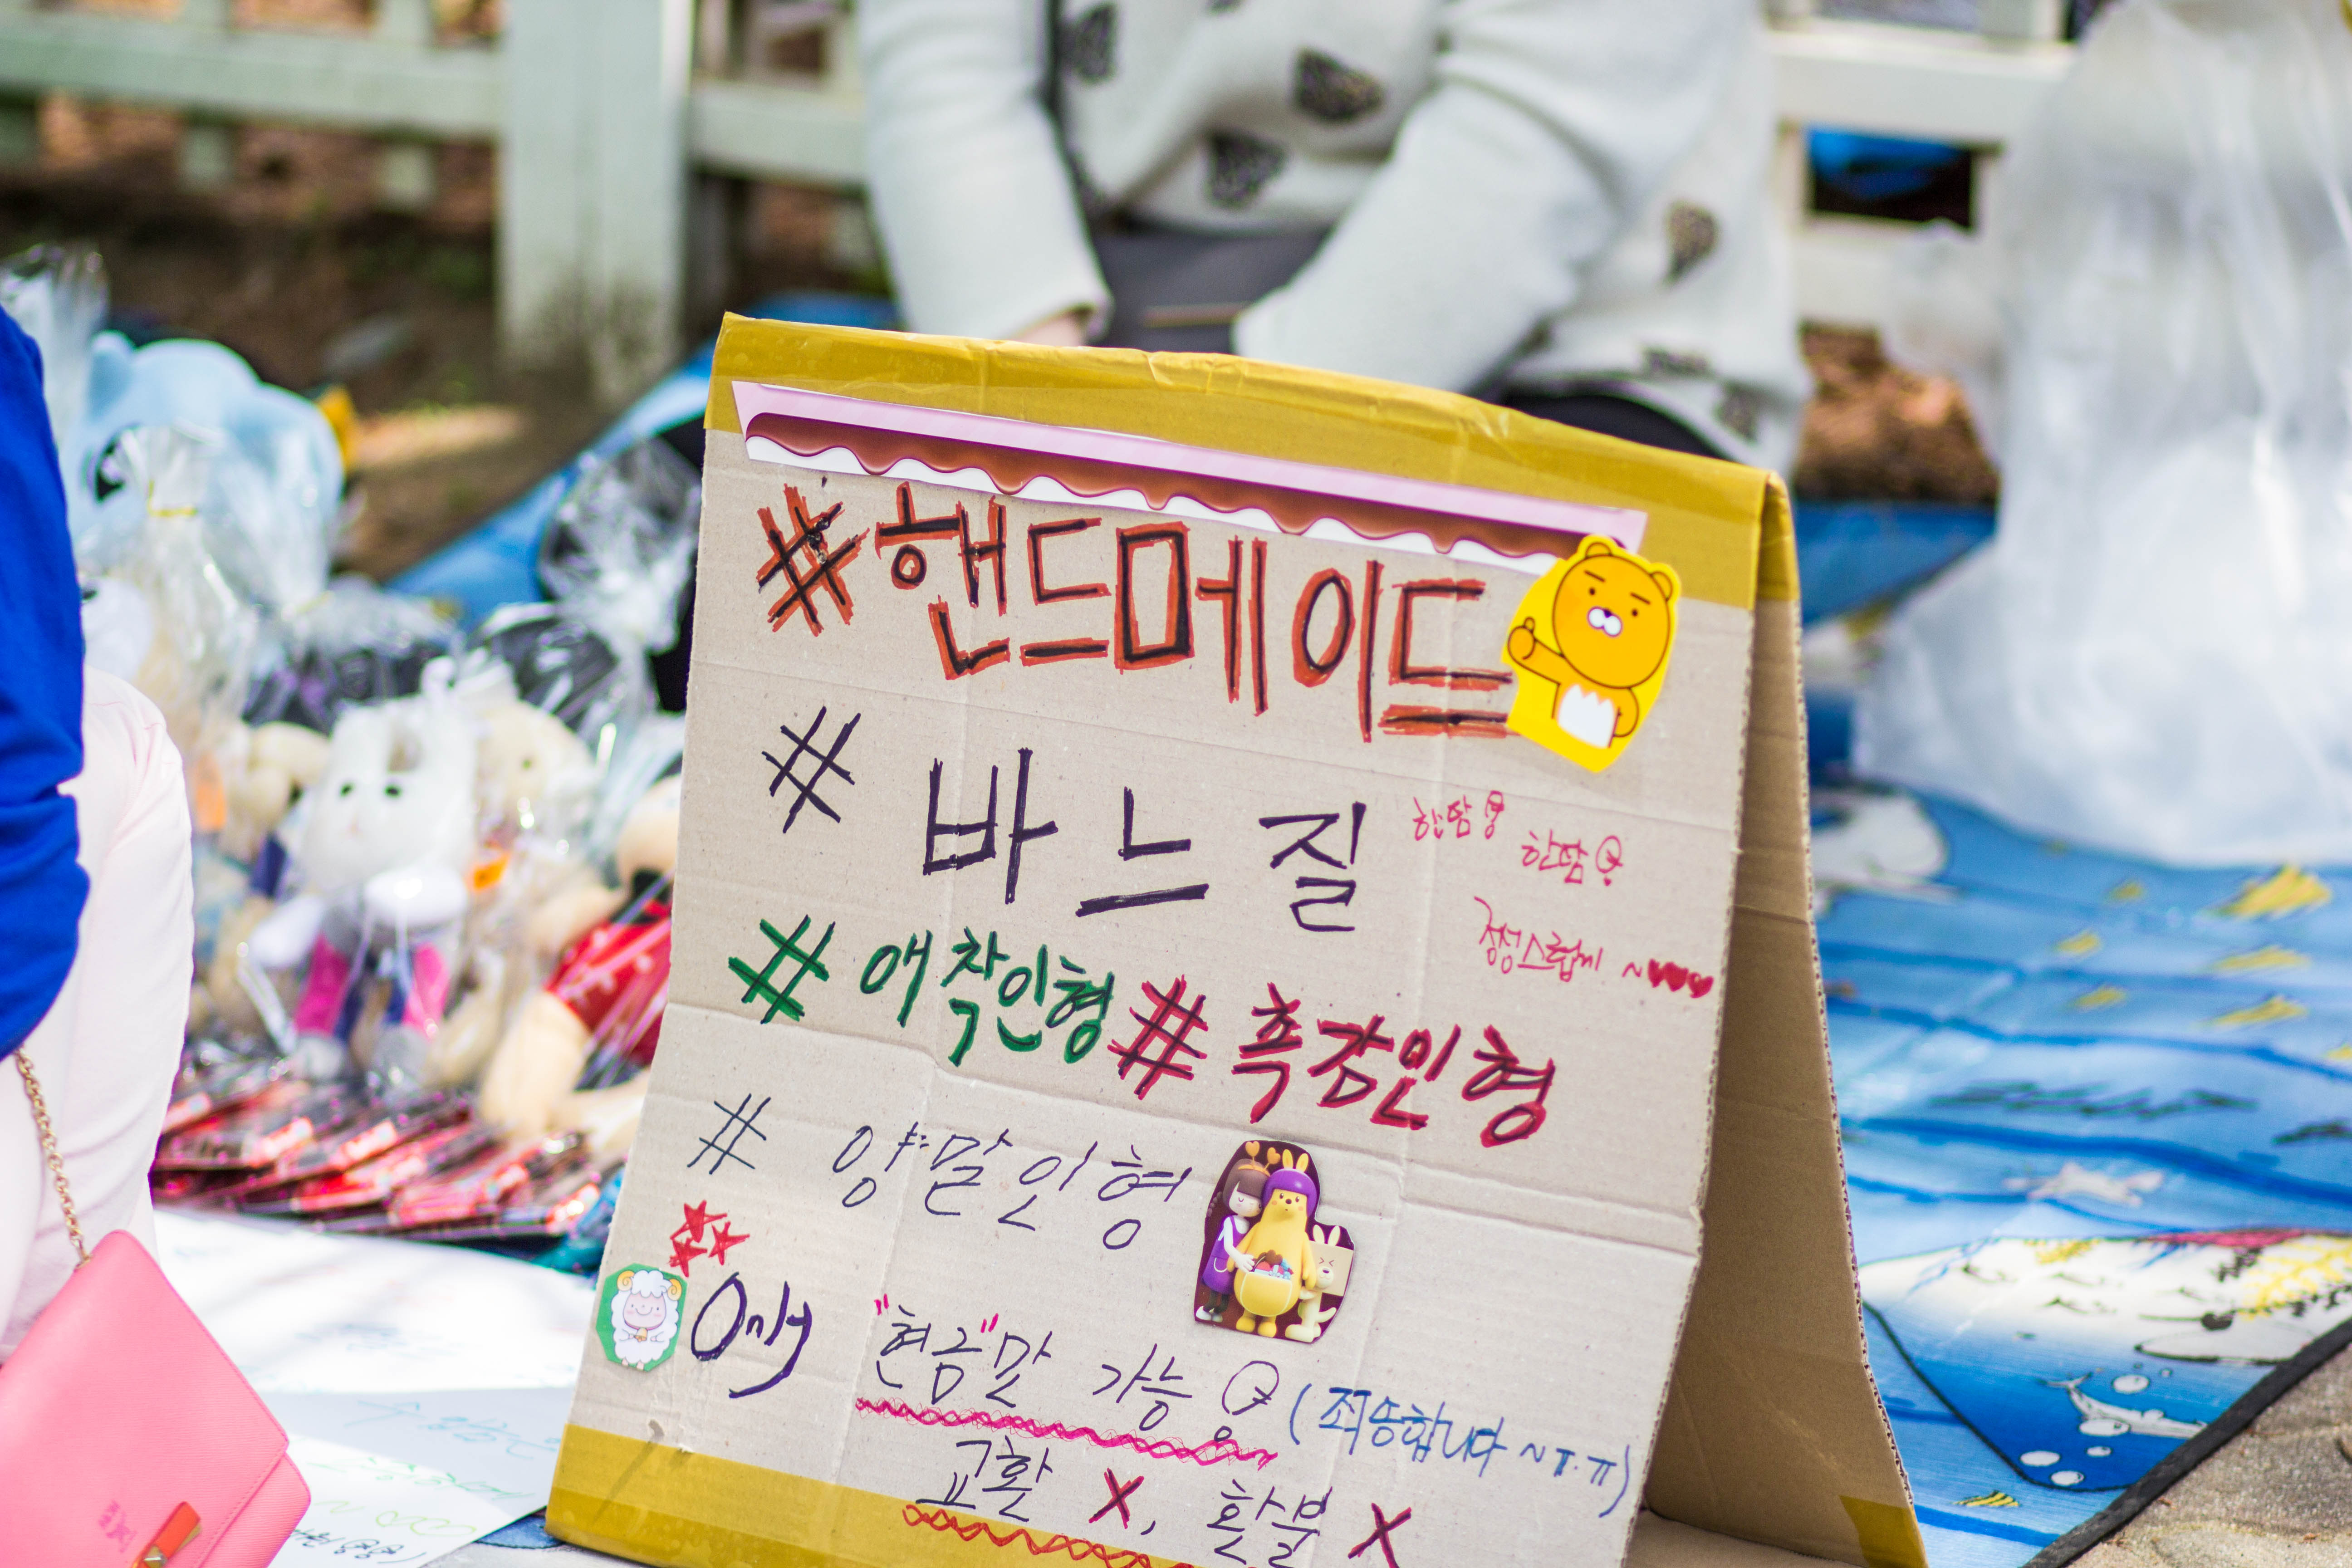 #핸드메이드
# 바느질
한땀! 한땀!
정성스럽게 ~♥♥♥
# 애착인형 # 흑감인형
# 양말인형
"현금"만 가능! (죄송합니다 ~ㅠ.ㅠ)
교환 X, 환불 X